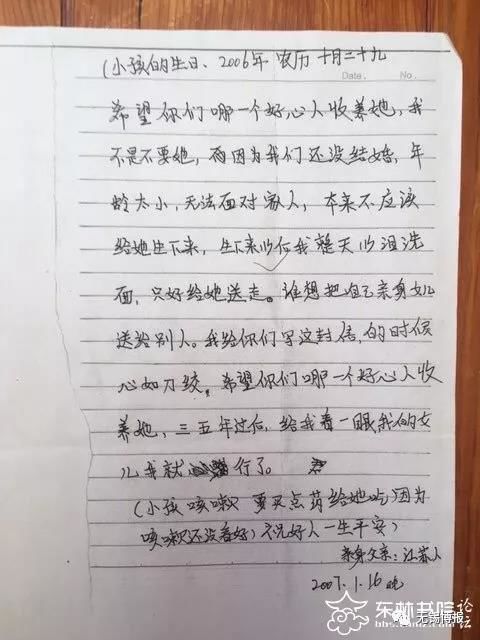 (小孩的生日、2006年 农历 十月二十九
Date. No.
希望你们哪一个好心人收养她,我
不是不要她,而因为我们还没结婚,年
龄太小,无法面对家人,本来不应该
给她生下来,生下来以后我整天以泪洗
面,只好给她送走。谁想把自己亲身女儿
送给别人。我给你们写这封信,的时候
心如刀绞,希望你们哪一个好心人收
养她,三五年过后,给我看一眼,我的女
儿我就行了。
(小孩咳嗽 要买点药给她吃因为
咳嗽还没看好)祝好人一生平安)
亲身父亲:江苏人
2007.1.16晚
东林书院论坛
无锡博报